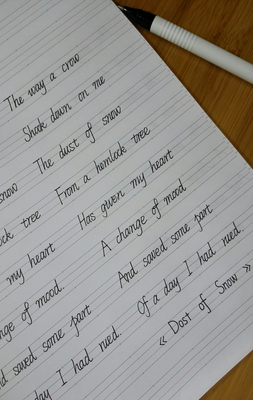 The way a crow
Shook down on me
The dust of snow
From a hemlock tree
Has given my heart
A change of mood
And saved some part
Of a day I had rued.
« Dost of Snow »
snow
tree
my heart
mood.
saved some part
day I had rued.